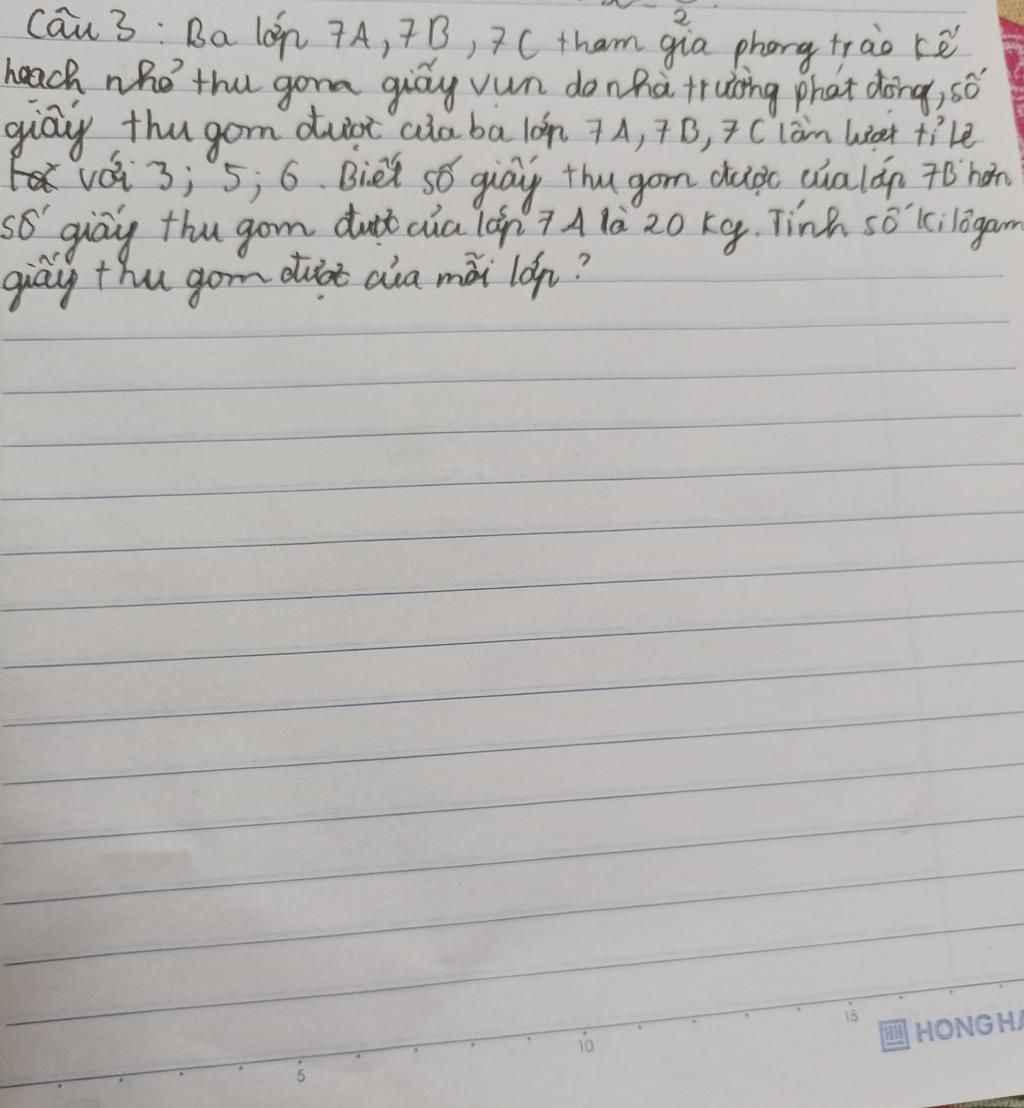 2
Câu 3: Ba lớp 7A, 7B, 7C tham gia phong trào kế
hoạch nhỏ thu gom giấy vụn do nhà trường phát động, số
giấy thu gom được của ba lớp 7A, 7B, 7C lần lượt tỉ lệ
với 3; 5; 6. Biết số giấy thu gom được của lớp 7B hơn
số giấy thu gom được của lớp 7A là 20 kg. Tính số kilôgam
giấy thu gom được của mỗi lớp?
5 10 15 HONG HA